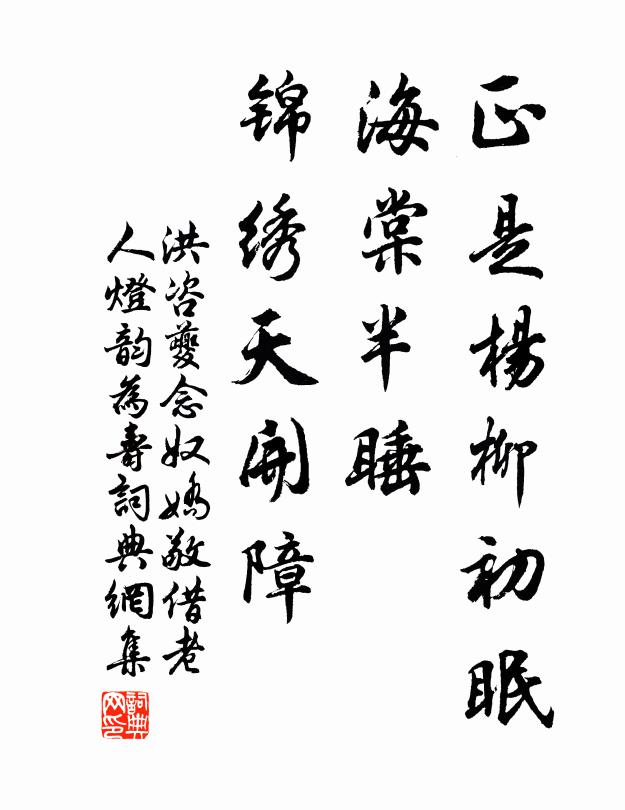 正是楊柳初眠
海棠半睡
锦绣天開障
洪咨夔念奴嬌敬借老
人燈韵為壽詞典網集
詞典
网印